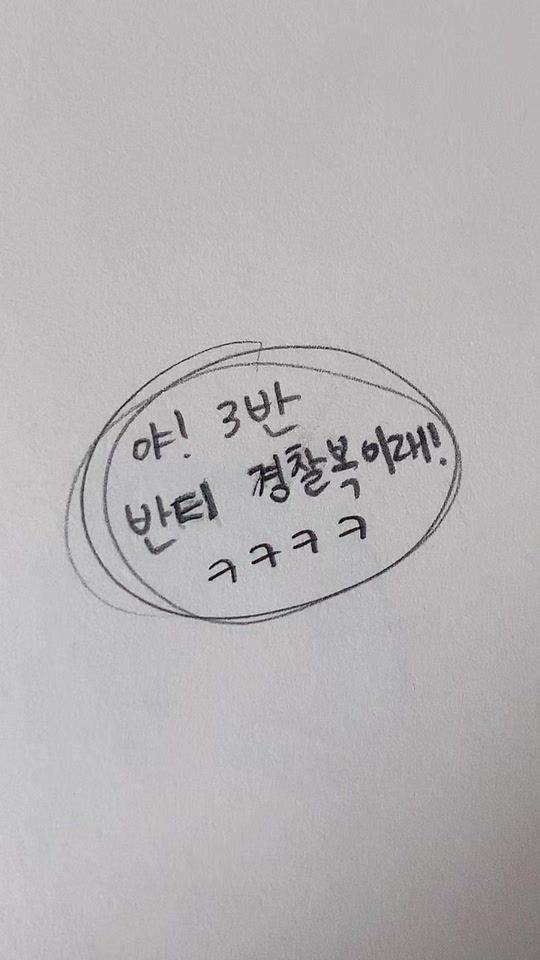 야! 3반
반티 경찰복이래!
ㅋㅋㅋㅋ